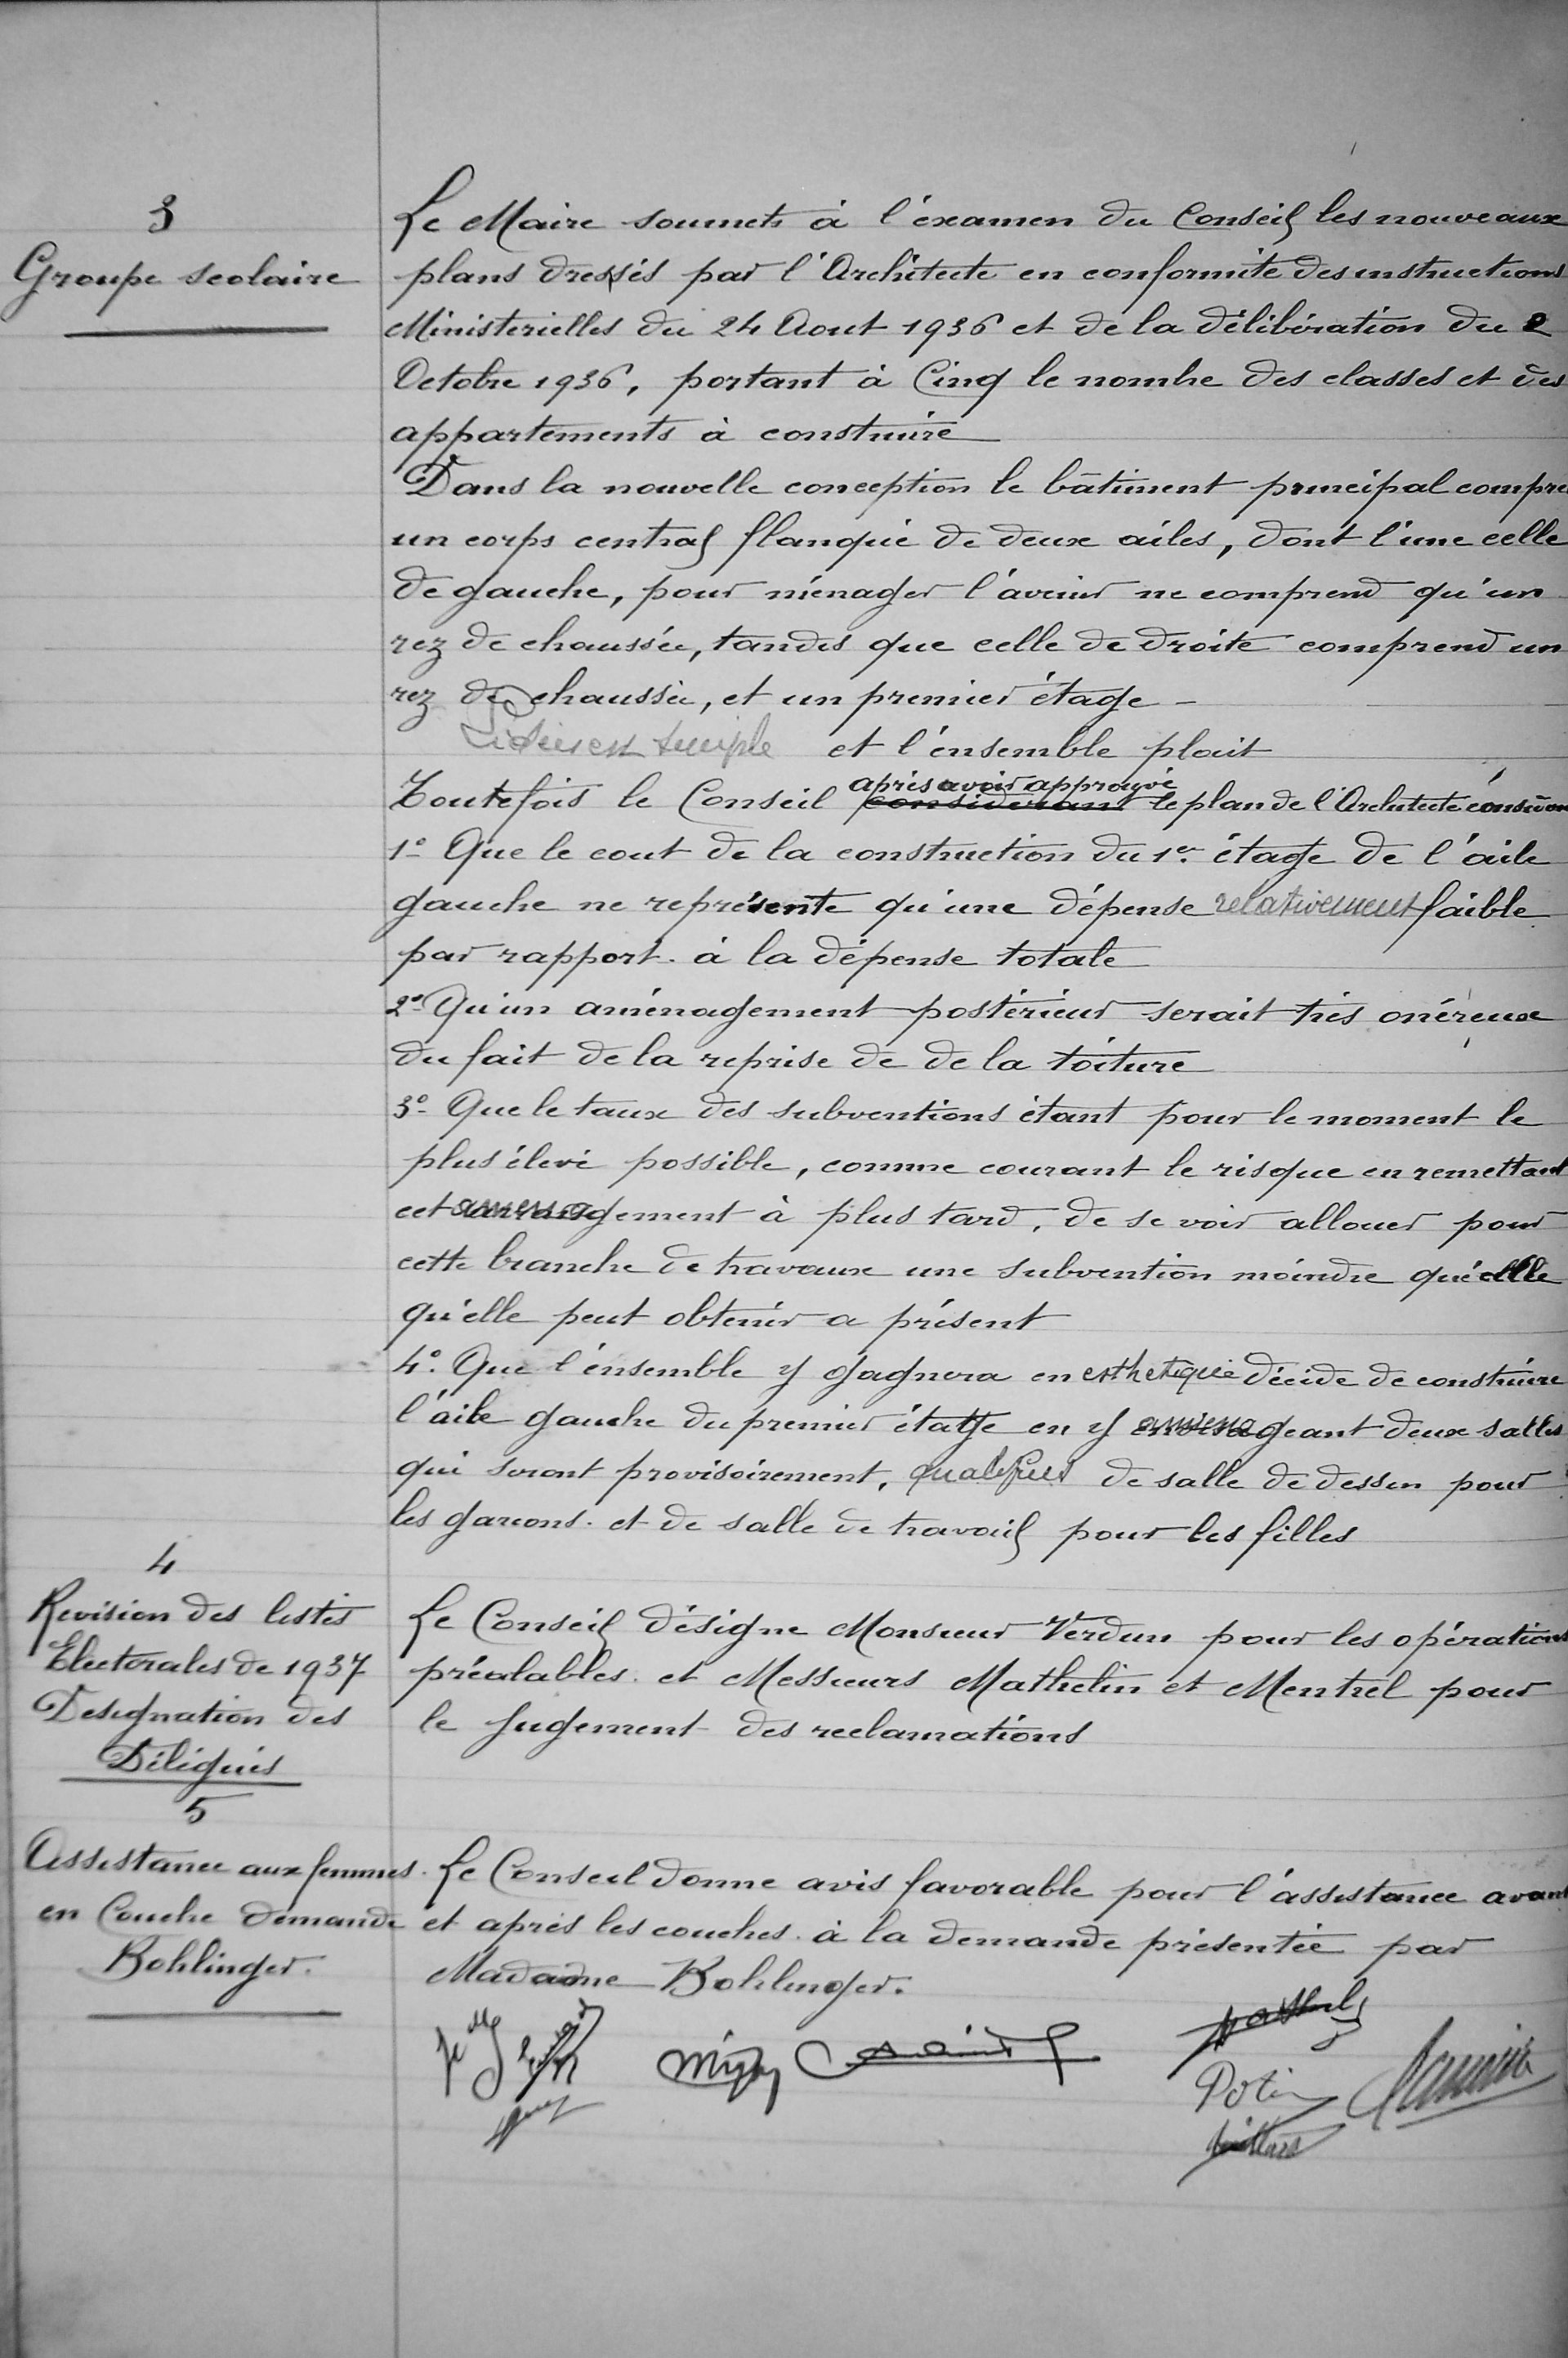 3
Groupe scolaire
Le Maire soumets à l'éxamen du Conseil les nouveaux
plans dressés par l'Architecte en conformité des instructions
Ministerielles du 24 Aout 1936 et de la délibération du 2
Octobre 1936, portant à Cinq le nombre des classes et des
appartements à construire
Dans la nouvelle conception le bâtiment principal compre
un corps central flanqué de deux ailes, dont l'une celle
de gauche, pour ménager l'avenir ne comprend qu'un
rez de chaussée, tandis que celle de droite comprend un
rez de chaussée, et un premier étage -
L'idée est simple et l'ensemble plait
après avoir approuvé
Toutefois le Conseil considerant le plan de l'Architecte considéran
1º- Que le cout de la construction du 1er étage de l'aile
gauche ne représente qu'une dépense relativement faible
par rapport à la dépense totale
2º- Qu'un aménagement postérieur serait très onéreux
du fait de la reprise de de la toiture
3º- Que le taux des subventions étant pour le moment le
plus élevé possible, comme courant le risque en remettant
cet amenagement à plus tard, de se voir allouer pour
cette branche de travaux une subvention moindre que celle
qu'elle peut obtenir a présent
4º. Que l'ensemble y gagnera en esthetique décide de construire
l'aile gauche du premier étage en y amenageant deux salles
qui seront provisoirement, qualifiées de salle de dessin pour
les garcons. et de salle de travail pour les filles
4
Revision des listes
Electorales de 1937
Designation des
Délégués
Le Conseil désigne Monsieur Verdun pour les opérations
préalables. et Messieurs Mathelin et Mentrel pour
le jugement des reclamations
5
Assistance aux femmes
en Couche demande
Bohlinger.
Le Conseil donne avis favorable pour l'assistance avant
et après les couches. à la demande présentée par
Madame Bohlinger.
Potin